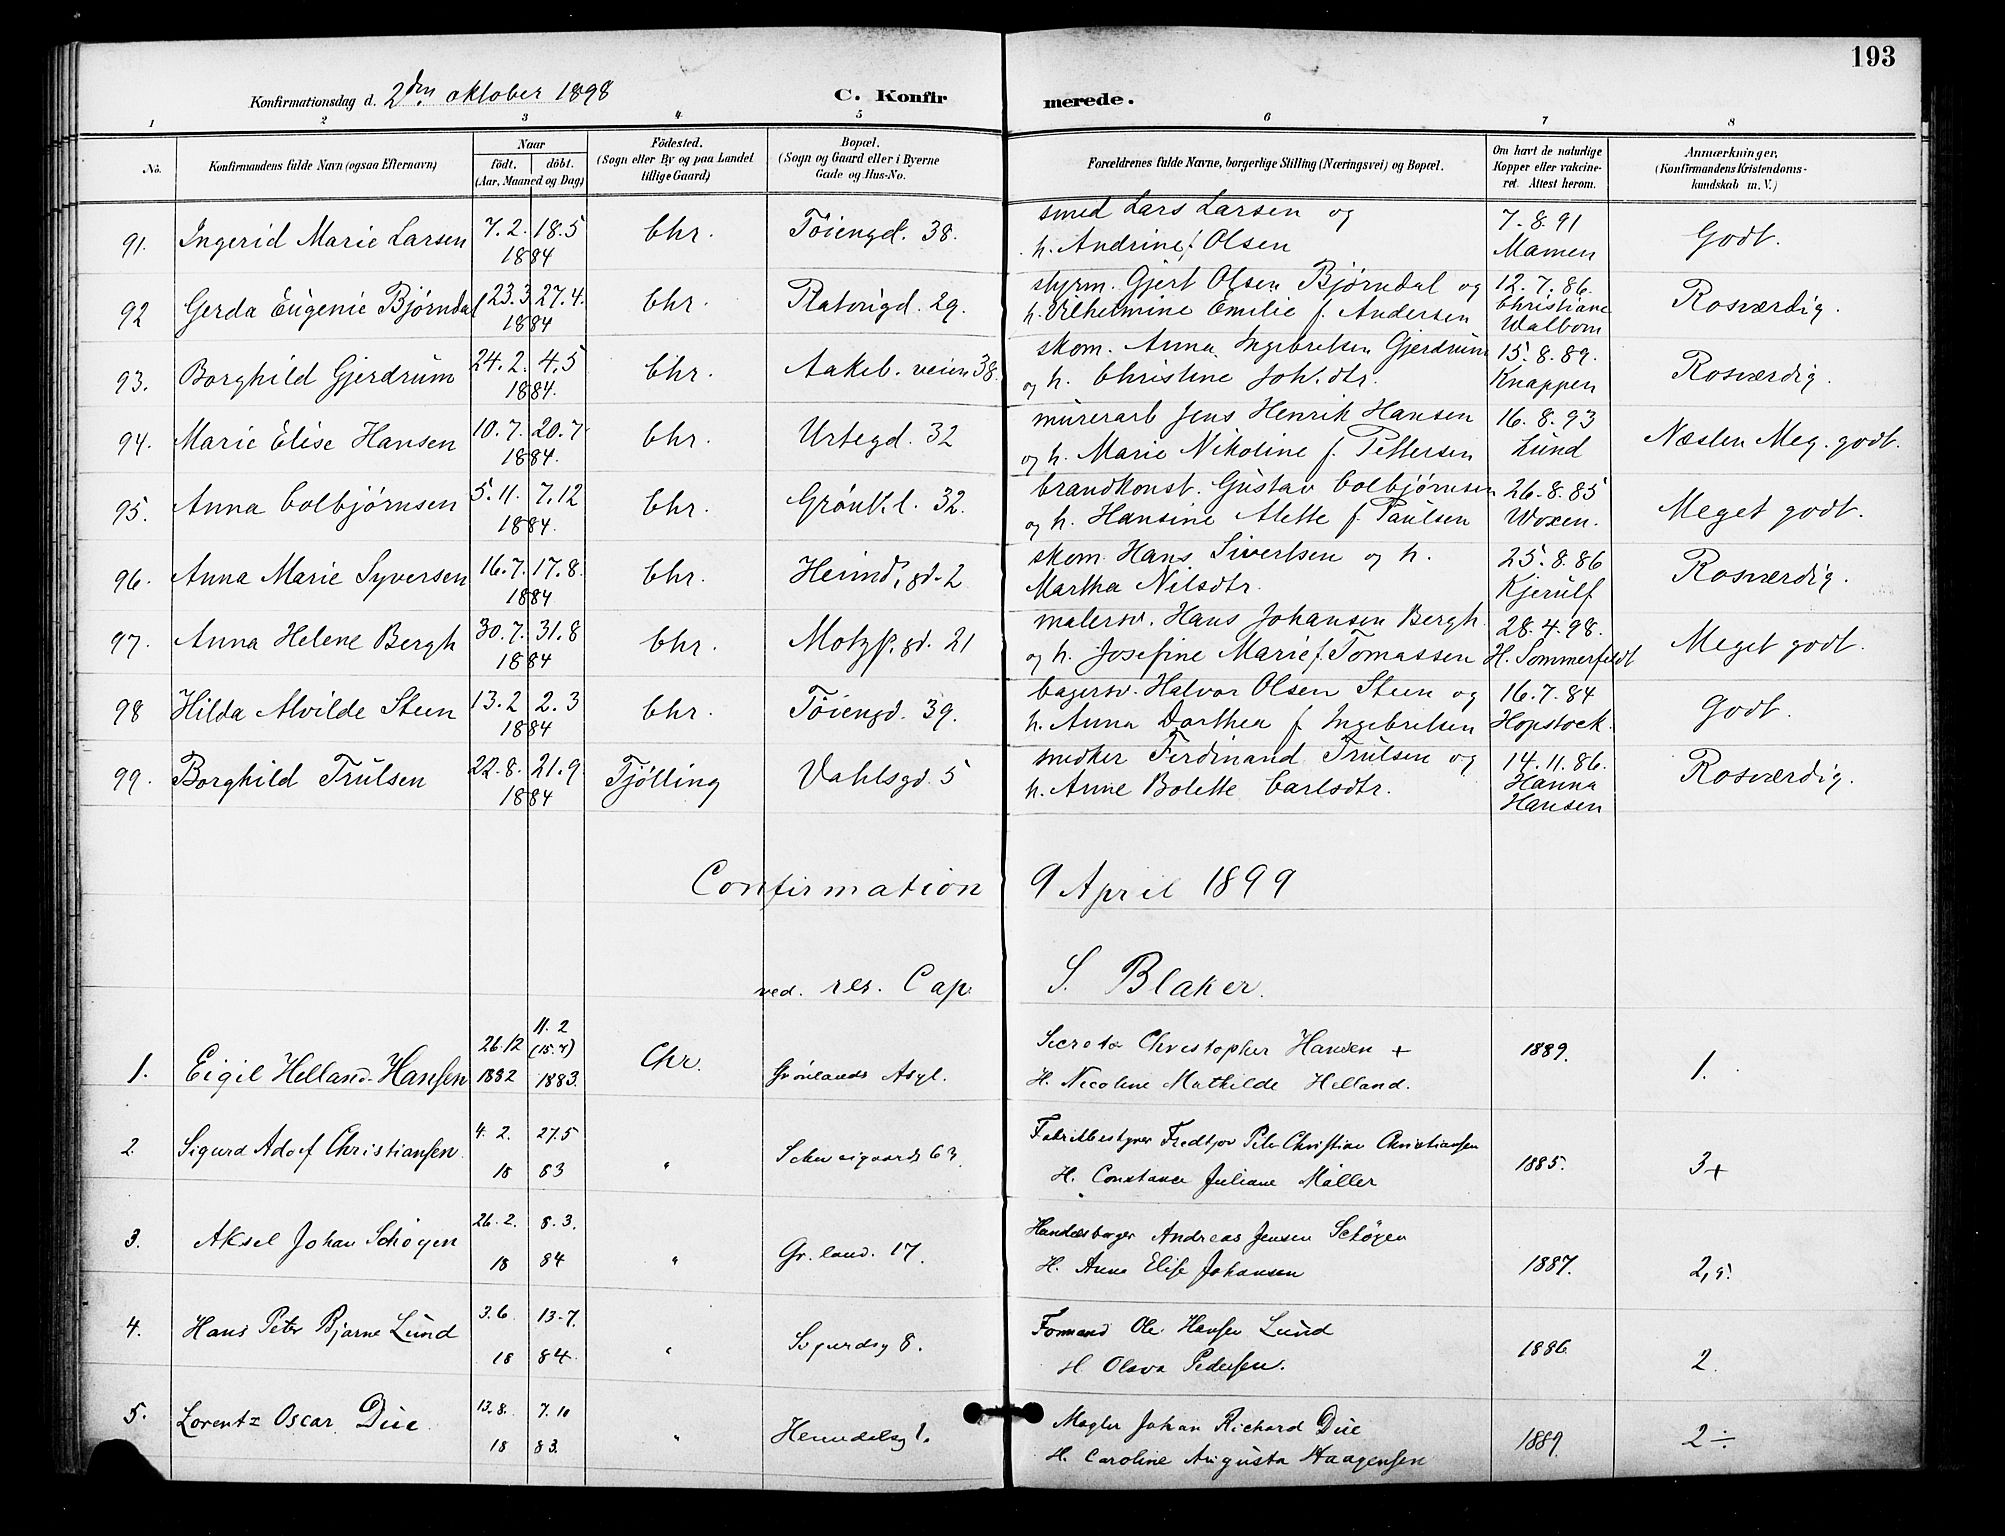 193
Konfirmationsdag d. 2den oktober 1898 C. Konfirmerede.
1 2 3 4 5 6 7 8
No. Konfirmandens fulde Navn (ogsaa Efternavn)
Naar født. døbt. (Aar, Maaned og Dag)
Födested. (Sogn eller By og paa Landet tillige Gaard)
Bopæl. (Sogn og Gaard eller i Byerne Gade og Hus-No.
Forældrenes fulde Navne, borgerlige Stilling (Næringsvei) og Bopæl.
Om havt de naturlige Kopper eller vakcineret. Attest herom.
Anmærkninger, (Konfirmandens Kristendomskundskab m. V.)
91. Ingerid Marie Larsen 7.2. 18.5 1884 Chr. Töiengd. 38. smed Lars Larsen og h. Andrine f. Olsen 7.8.91 Mamen Godt.
92 Gerda Eugenie Bjørndal 23.3 27.4. 1884 Chr. Platougd. 29. styrm. Gjert Olsen Bjørndal og h. Vilhelmine Emilie f. Andersen 12.7.86. Christiane Walbom Rosværdig.
93. Borghild Gjerdrum 24.2. 4.5 1884. Chr. Aakeb. veien 38. skom. Anna Ingebretsen Gjerdrum og h. Christine Joh.dtr. 15.8.89. Knappen Rosværdig.
94. Marie Elise Hansen 10.7. 20.7 1884. Chr. Urtegd. 32 murerarb Jens Henrik Hansen og h. Marie Nikoline f. Pettersen 16.8.93 Lund Næsten Meg. godt.
95. Anna Colbjørnsen 5.11. 7.12 1884. Chr. Grønl.l. 32. brandkonst. Gustav Colbjørnsen og h. Hansine Alette f. Paulsen 26.8.85 Woxen. Meget godt.
96. Anna Marie Syversen 16.7. 17.8. 1884 Chr. Heimd. gd. 2 skom. Hans Sivertsen og h. Martha Nilsdtr. 25.8.86 Kjerulf Rosværdig.
97. Anna Helene Bergh 30.7. 31.8 1884 Chr. Motzf. gd. 21 malersv. Hans Johansen Bergh. og h. Josefine Marie f. Tomassen 28.4.98. H. Sommerfeldt Meget godt.
98 Hilda Alvilde Steen 13.2 2.3 1884 Chr. Töiengd. 39. bagersv. Halvor Olsen Steen og h. Anna Dorthea f. Ingebretsen 16.7.84 Hopstock. Godt.
99. Borghild Trulsen 22.8. 21.9. 1884 Tjölling Vahlsgd. 5 snedker Ferdinand Trulsen og h. Anne Bolette Carlsdtr. 14.11.86. Hanna Hansen Rosværdig.
Confirmation 9 April 1899
ved. res. Cap. S. Blaker.
1. Eigil Helland-Hansen 26.12 1882 11.2 (15.7) 1883. Chr. Grönlands Asyl. Secretær Christopher Hansen + H. Nicoline Mathilde Helland. 1889. 1.
2. Sigurd Adolf Christiansen. 4.2. 27.5 18 83 " Schweigaards 63. Fabrikbestyrer Fredtjov Peter Christian Christiansen H. Constance Juliane Møller 1885. 3+
3. Aksel Johan Schøyen 26.2. 8.3. 18 84 " Gr. land. 17. Handelsborger Andreas Jensen Schøyen H. Anna Elise Johansen 1887. 2,5.
4. Hans Peter Bjarne Lund 3.6. 13.7. 18 84. " Sigurdsg 8. Formand Ole Hansen Lund H. Olava Pedersen. 1886. 2.
5. Lorentz Oscar Due 13.8. 7.10 18 83. " Heimdalsg 1. Mægler Johan Richard Due H. Caroline Augusta Haagensen 1889. 2÷